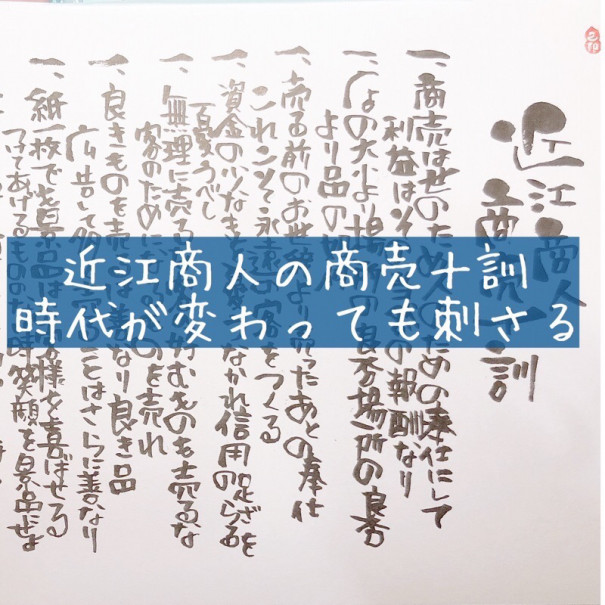 近江商人の商売十訓
時代が変わっても刺さる
近江商人
商売 訓
一、商売は世のため人のための奉仕にして
利益はそ の報酬なり
一、 の大小より場 の良否場所の良否
より品の
一、売る前のお世辞より売ったあとの奉仕
これこそ永遠の客をつくる
一、資金の少なきを なかれ信用の足らざるを
うべし
一、無理に売る 好むものも売るな
客のためにな のを売れ
一、良きものを売 善なり良き品
広告して ことはさらに善なり
一、紙一枚でも景品は 客様を喜ばせる
つけてあげるもののな 時笑顔を景品にせよ